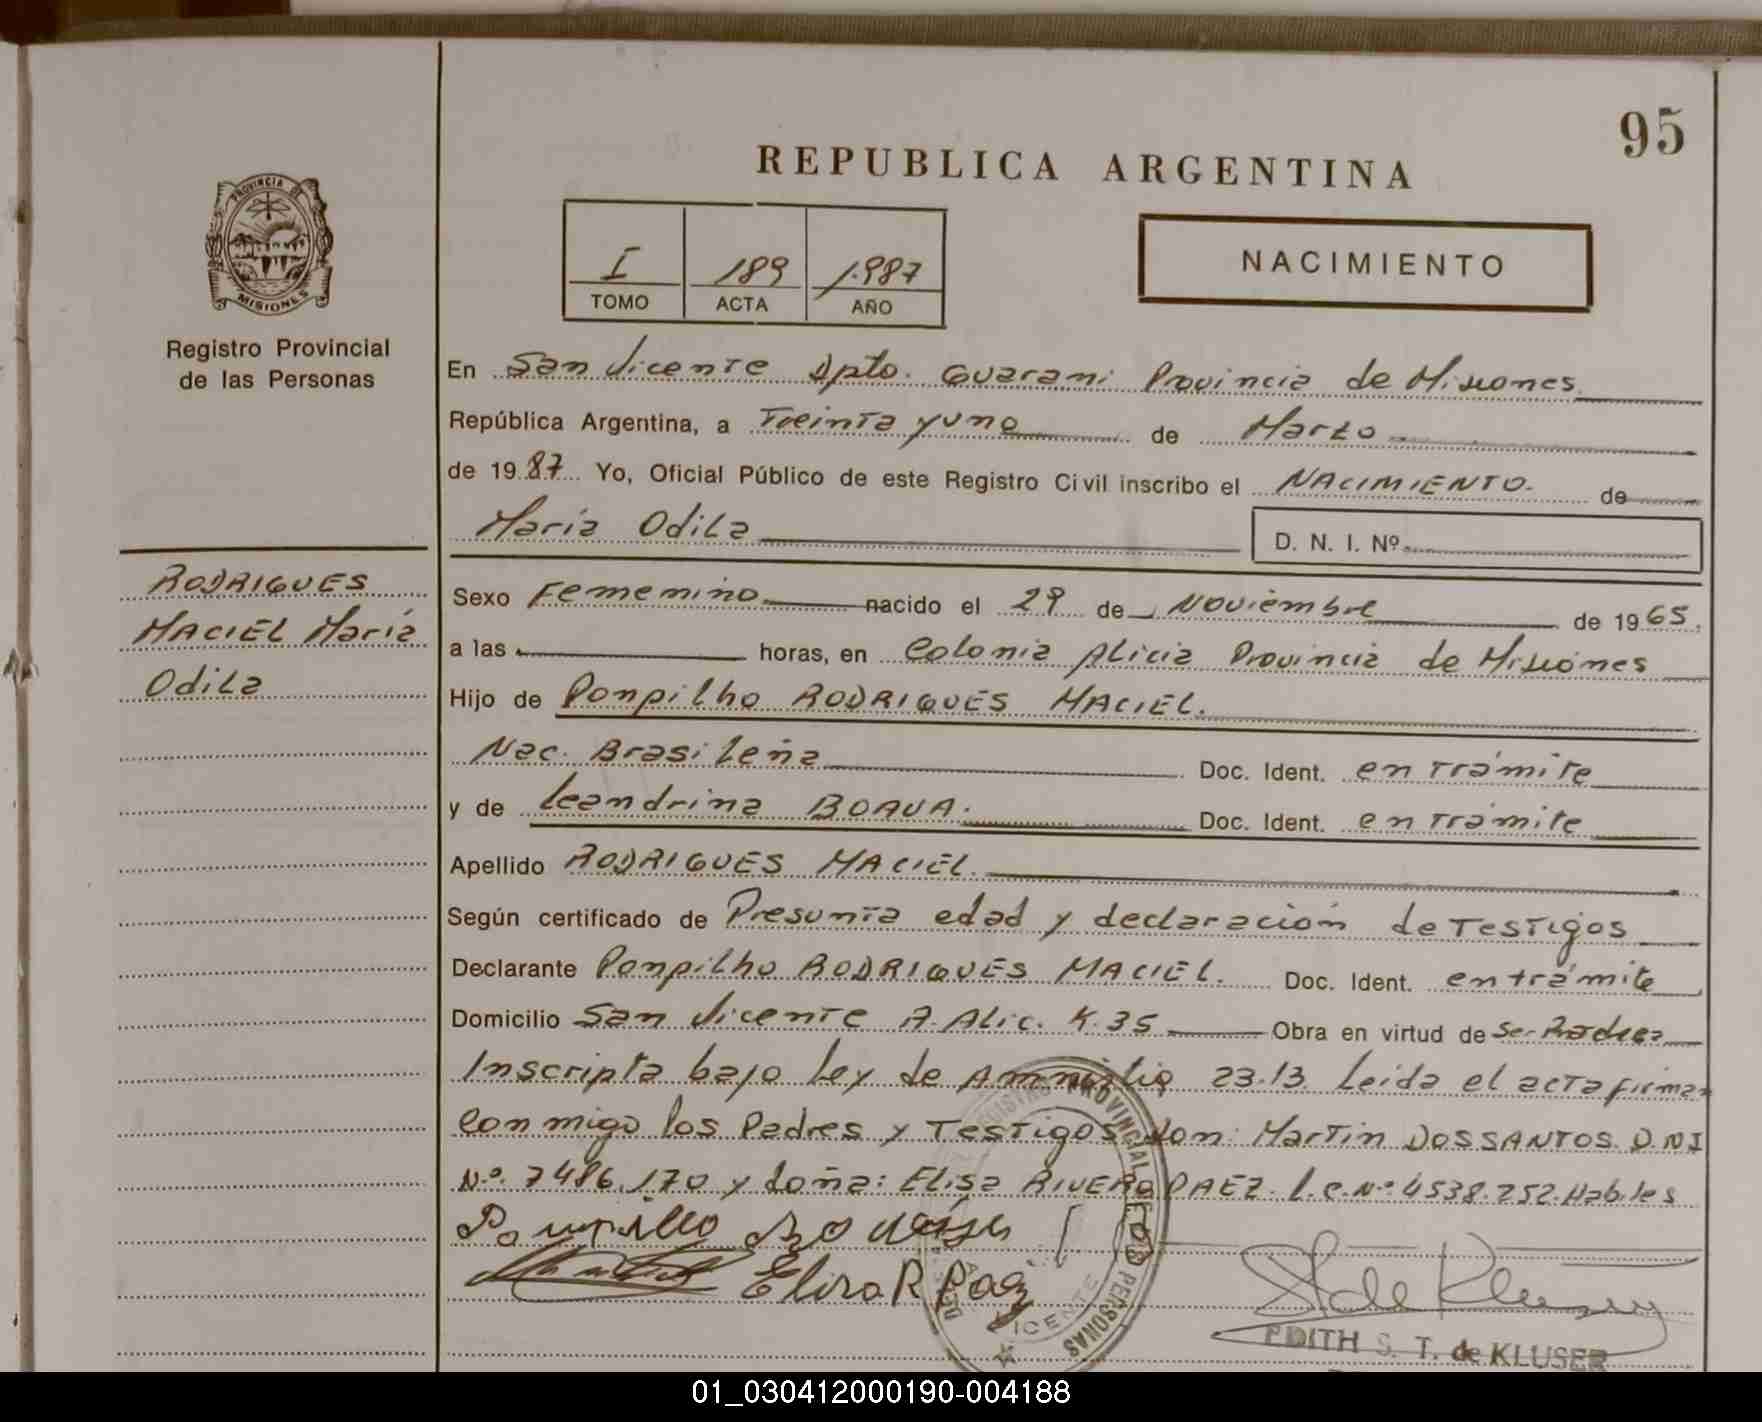 95
REPUBLICA ARGENTINA
I 189 1.987
TOMO ACTA AÑO
NACIMIENTO
PROVINCIA DE
MISIONES
Registro Provincial
de las Personas
RODRIGUES
MACIEL María
Odila
En San Vicente Dpto. Guarani Provincia de Misiones
República Argentina, a Treinta y uno de Marzo
de 1987 Yo, Oficial Público de este Registro Civil inscribo el NACIMIENTO. de
María Odila D. N. I. Nº
Sexo Femenino nacido el 29 de Noviembre de 1965.
a las horas, en Colonia Alicia Provincia de Misiones
Hijo de Ponpilho RODRIGUES MACIEL.
Nac. Brasileña Doc. Ident. en trámite
y de Leandrina BOAVA. Doc. Ident. en trámite
Apellido RODRIGUES MACIEL.
Según certificado de Presunta edad y declaración de Testigos
Declarante Ponpilho RODRIGUES MACIEL. Doc. Ident. en trámite
Domicilio San Vicente A. Alic. K. 35 Obra en virtud de ser
Inscripta bajo Ley de Amnistia 23.13. Leída el acta firman
conmigo los Padres y Testigos don: Martin DOSSANTOS D.N.I
Nº. 7486.170 y doña: Elisa RIVERO PAEZ. L.C. Nº 4538.252 Habiles
Elisa R Paez
REGISTRO PROVINCIAL DE LAS PERSONAS
VICENTE
EDITH S. T. de KLUSER
01_030412000190-004188